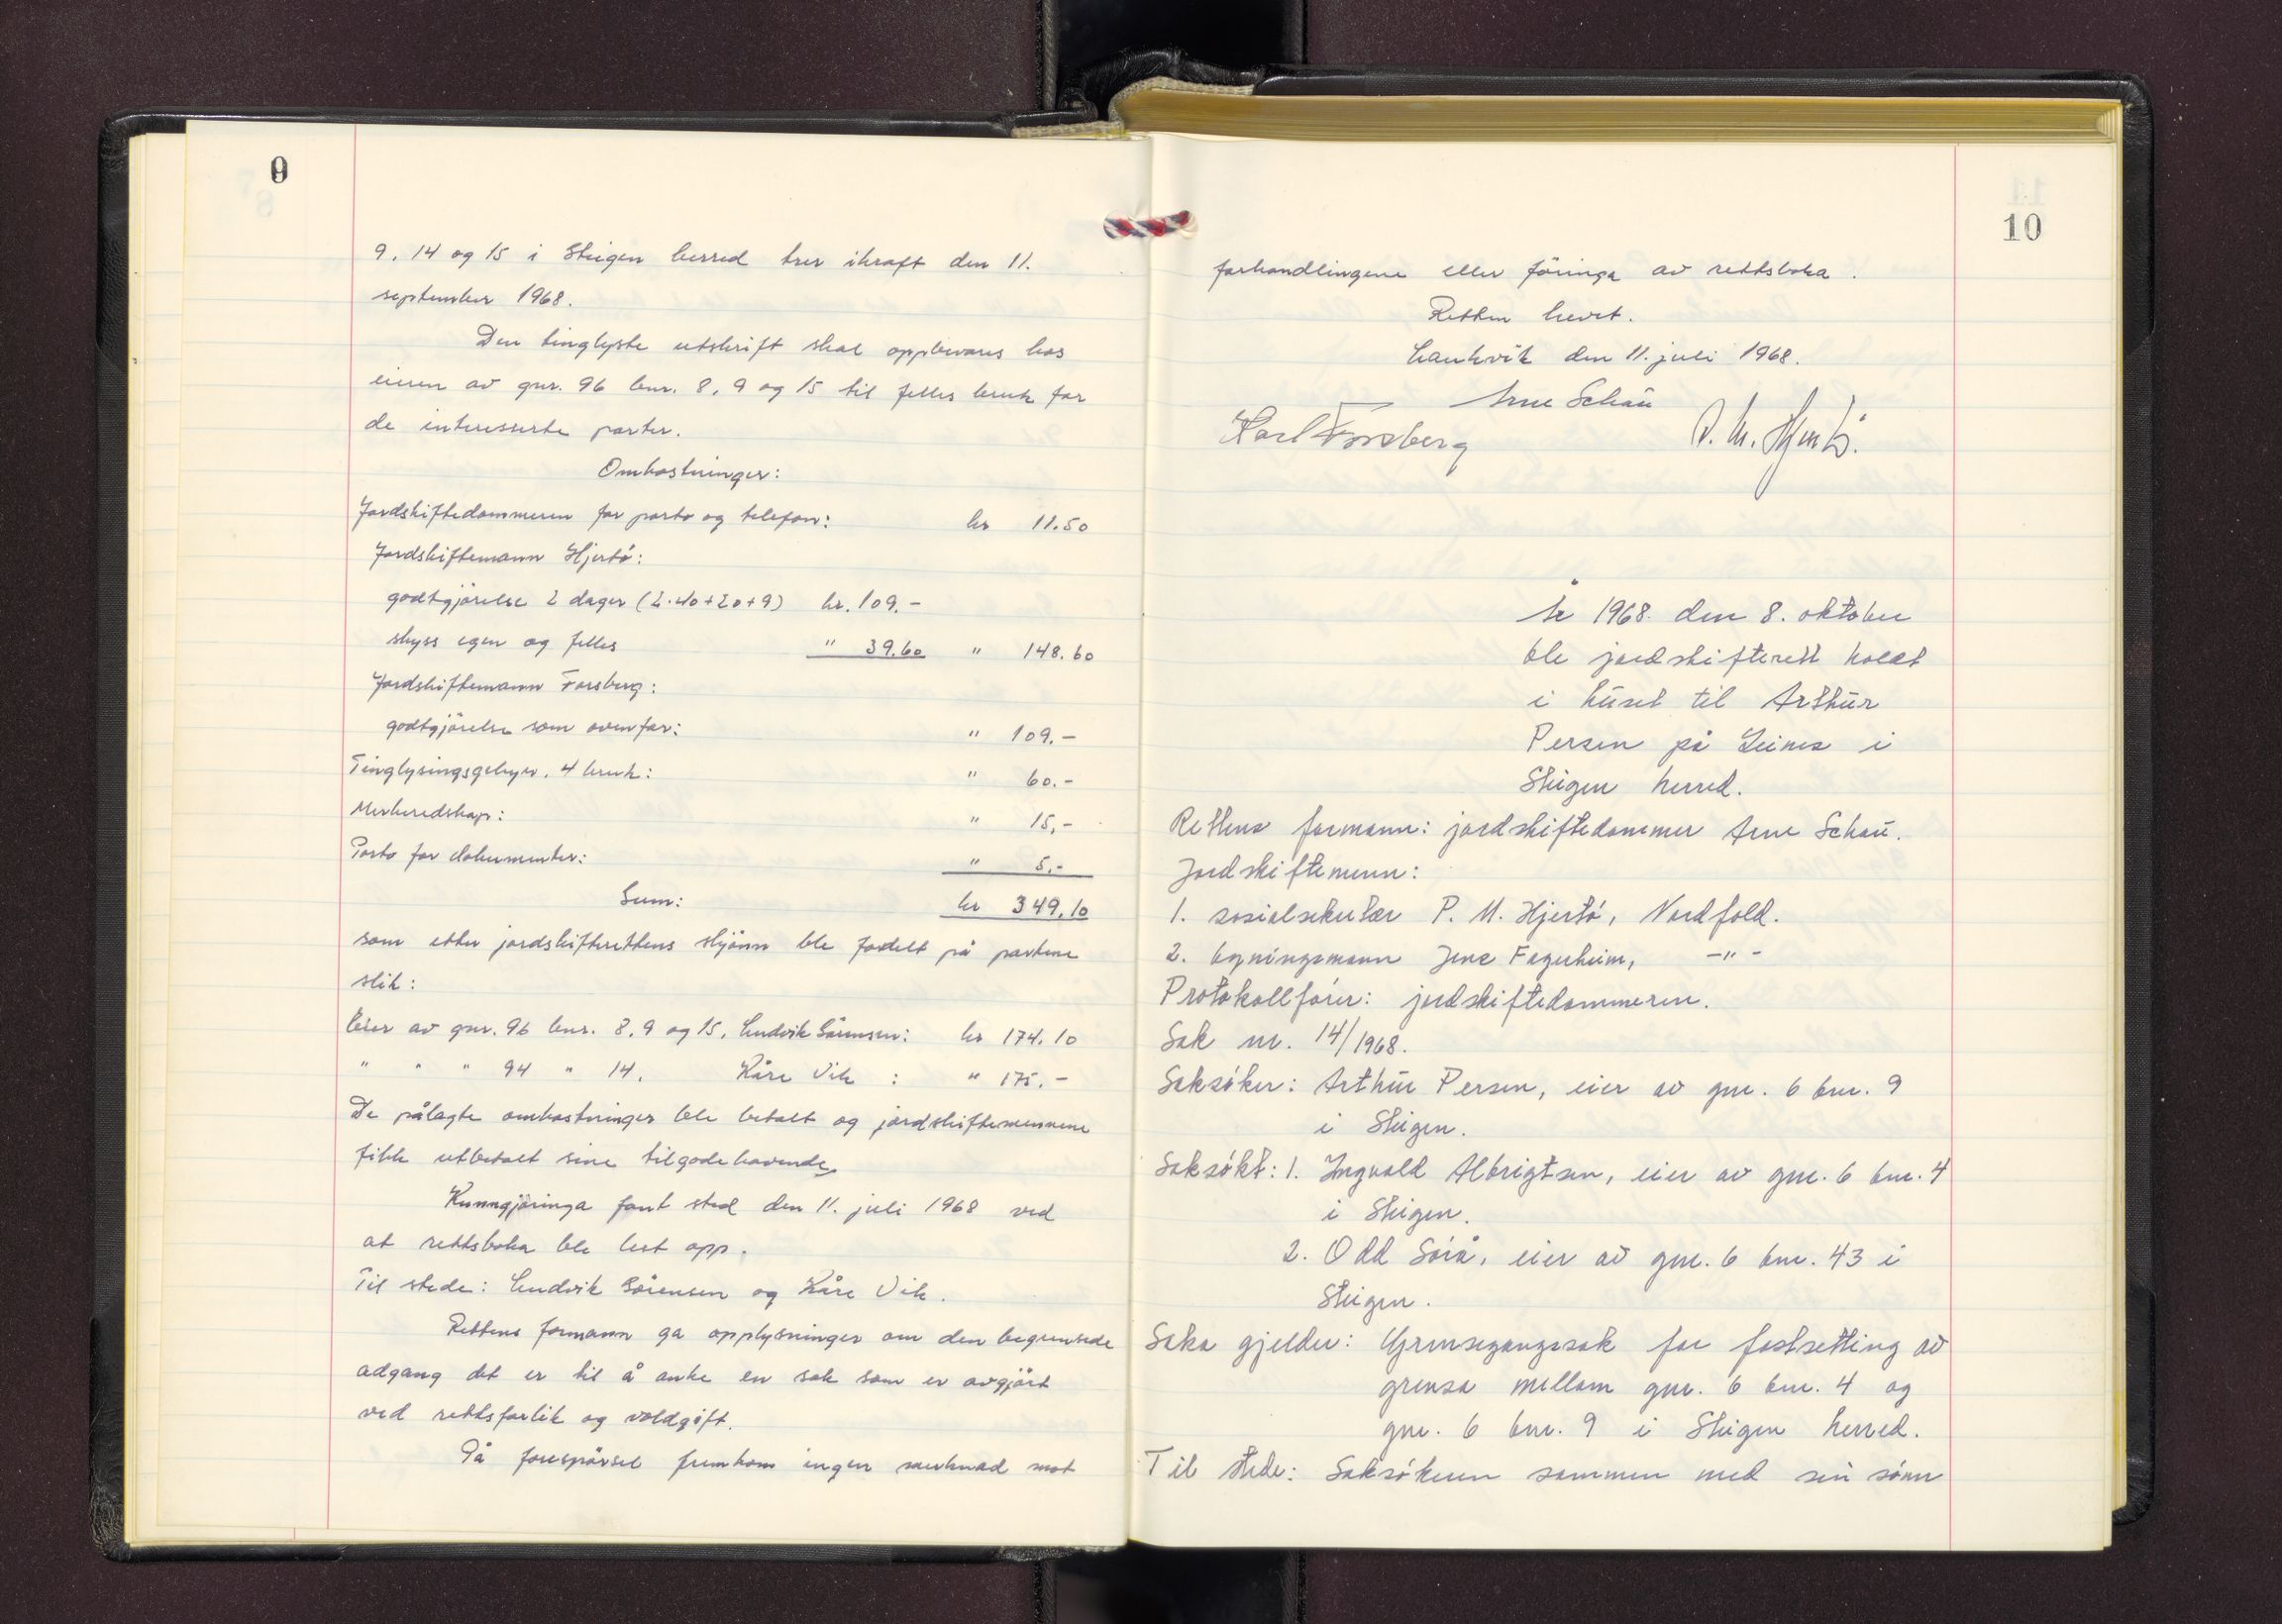 9
9, 14 og 15 i Steigen herred trer ikraft den 11.
september 1968.
Den tinglyste utskrift skal oppbevares hos
eieren av gnr. 96 bnr. 8, 9 og 15 til felles bruk for
de interesserte parter.
Omkostninger:
Jordskiftedommeren for porto og telefon: kr 11.50
Jordskiftemann Hjertö:
godtgjörelse 2 dager (2·40+20+9) kr. 109.-
skyss egen og felles " 39.60 " 148.60
Jordskiftemann Forsberg:
godtgjörelse som ovenfor: " 109.-
Tinglysingsgebyr, 4 bruk: " 60.-
Merkeredskap: " 15,-
Porto for dokumenter: " 5,-
Sum: kr 349,10
som etter jordskifterettens skjönn ble fordelt på partene
slik:
Eier av gnr. 96 bnr. 8, 9 og 15, Ludvik Sörensen: kr 174.10
" " " 94 " 14, Kåre Vik : " 175.-
De pålagte omkostninger ble betalt og jordskiftemennene
fikk utbetalt sine tilgodehavende.
Kunngjöringa fant sted den 11. juli 1968 ved
at rettsboka ble lest opp.
Til stede: Ludvik Sörensen og Kåre Vik.
Rettens formann ga opplysninger om den begrensede
adgang det er til å anke en sak som er avgjört
ved rettsforlik og voldgift.
På forespörsel fremkom ingen merknad mot
10
forhandlingene eller föringa av rettsboka.
Retten hevet.
den 11. juli 1968.
Arne Schau
Karl Forsberg P. M. Hjertö.
År 1968 den 8. oktober
ble jordskifterett holdt
i huset til Arthur
Persen på Leines i
Steigen herred.
Rettens formann: jordskiftedommer Arne Schau.
Jordskiftemenn:
1. sosialsekretær P. M. Hjertó, Nordfold.
2. bygningsmann Jens Fagerheim, -"-
Protokollfórer: jordskiftedommeren.
Sak nr. 14/1968.
Saksóker: Arthur Persen, eier av gnr. 6 bnr. 9
i Steigen.
Saksókt: 1. Ingvald Albrigtsen, eier av gnr. 6 bnr. 4
i Steigen.
2. Odd Sórå, eier av gnr. 6 bnr. 43 i
Steigen.
Saka gjelder: Grensegangssak for fastsetting av
grensa mellom gnr. 6 bnr. 4 og
gnr. 6 bnr. 9 i Steigen herred.
Til stede: Saksókeren sammen med sin sónn